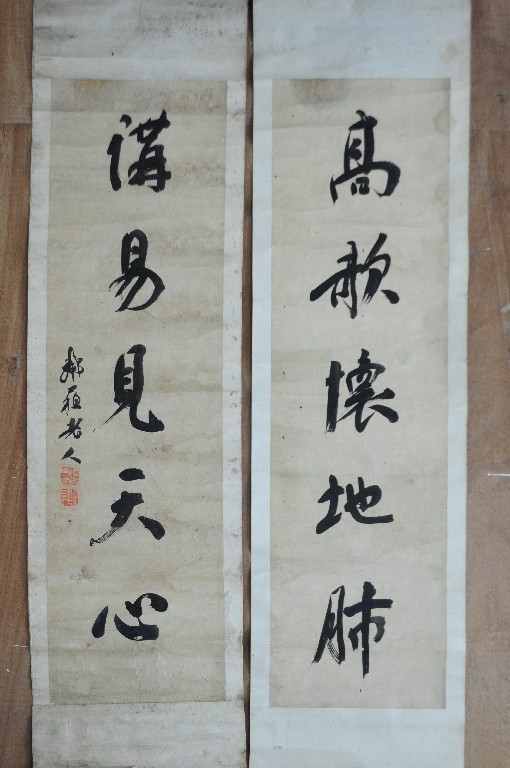 高歌懷地肺
講易見天心
老人